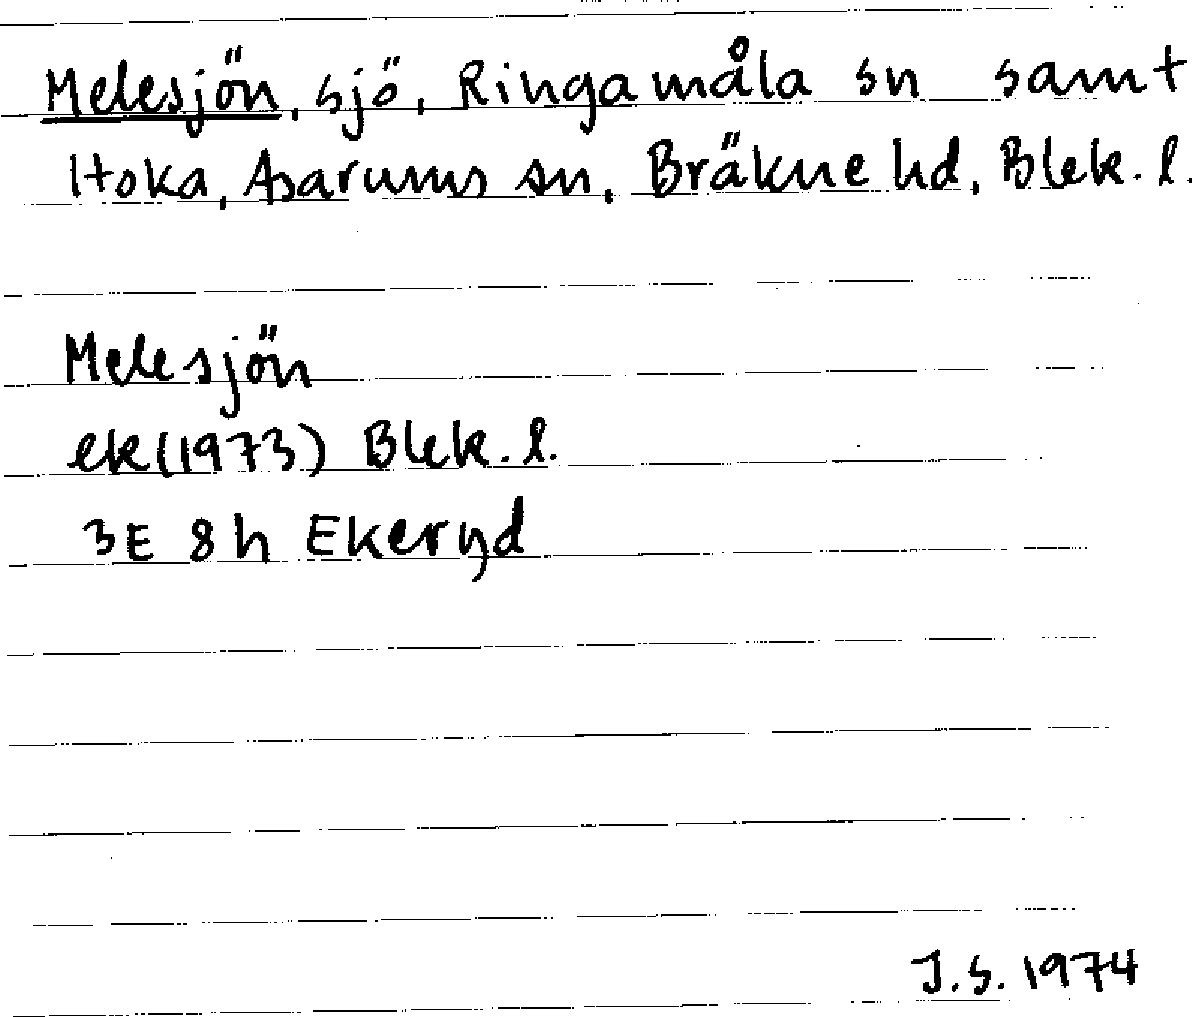 Melesjön, sjö, Ringamåla sn samt
Hoka, Asarums sn, Bräkne hd, Blek. l.
Melesjön
ek(1973) Blek. l.
3E 8h Ekeryd
J.S. 1974